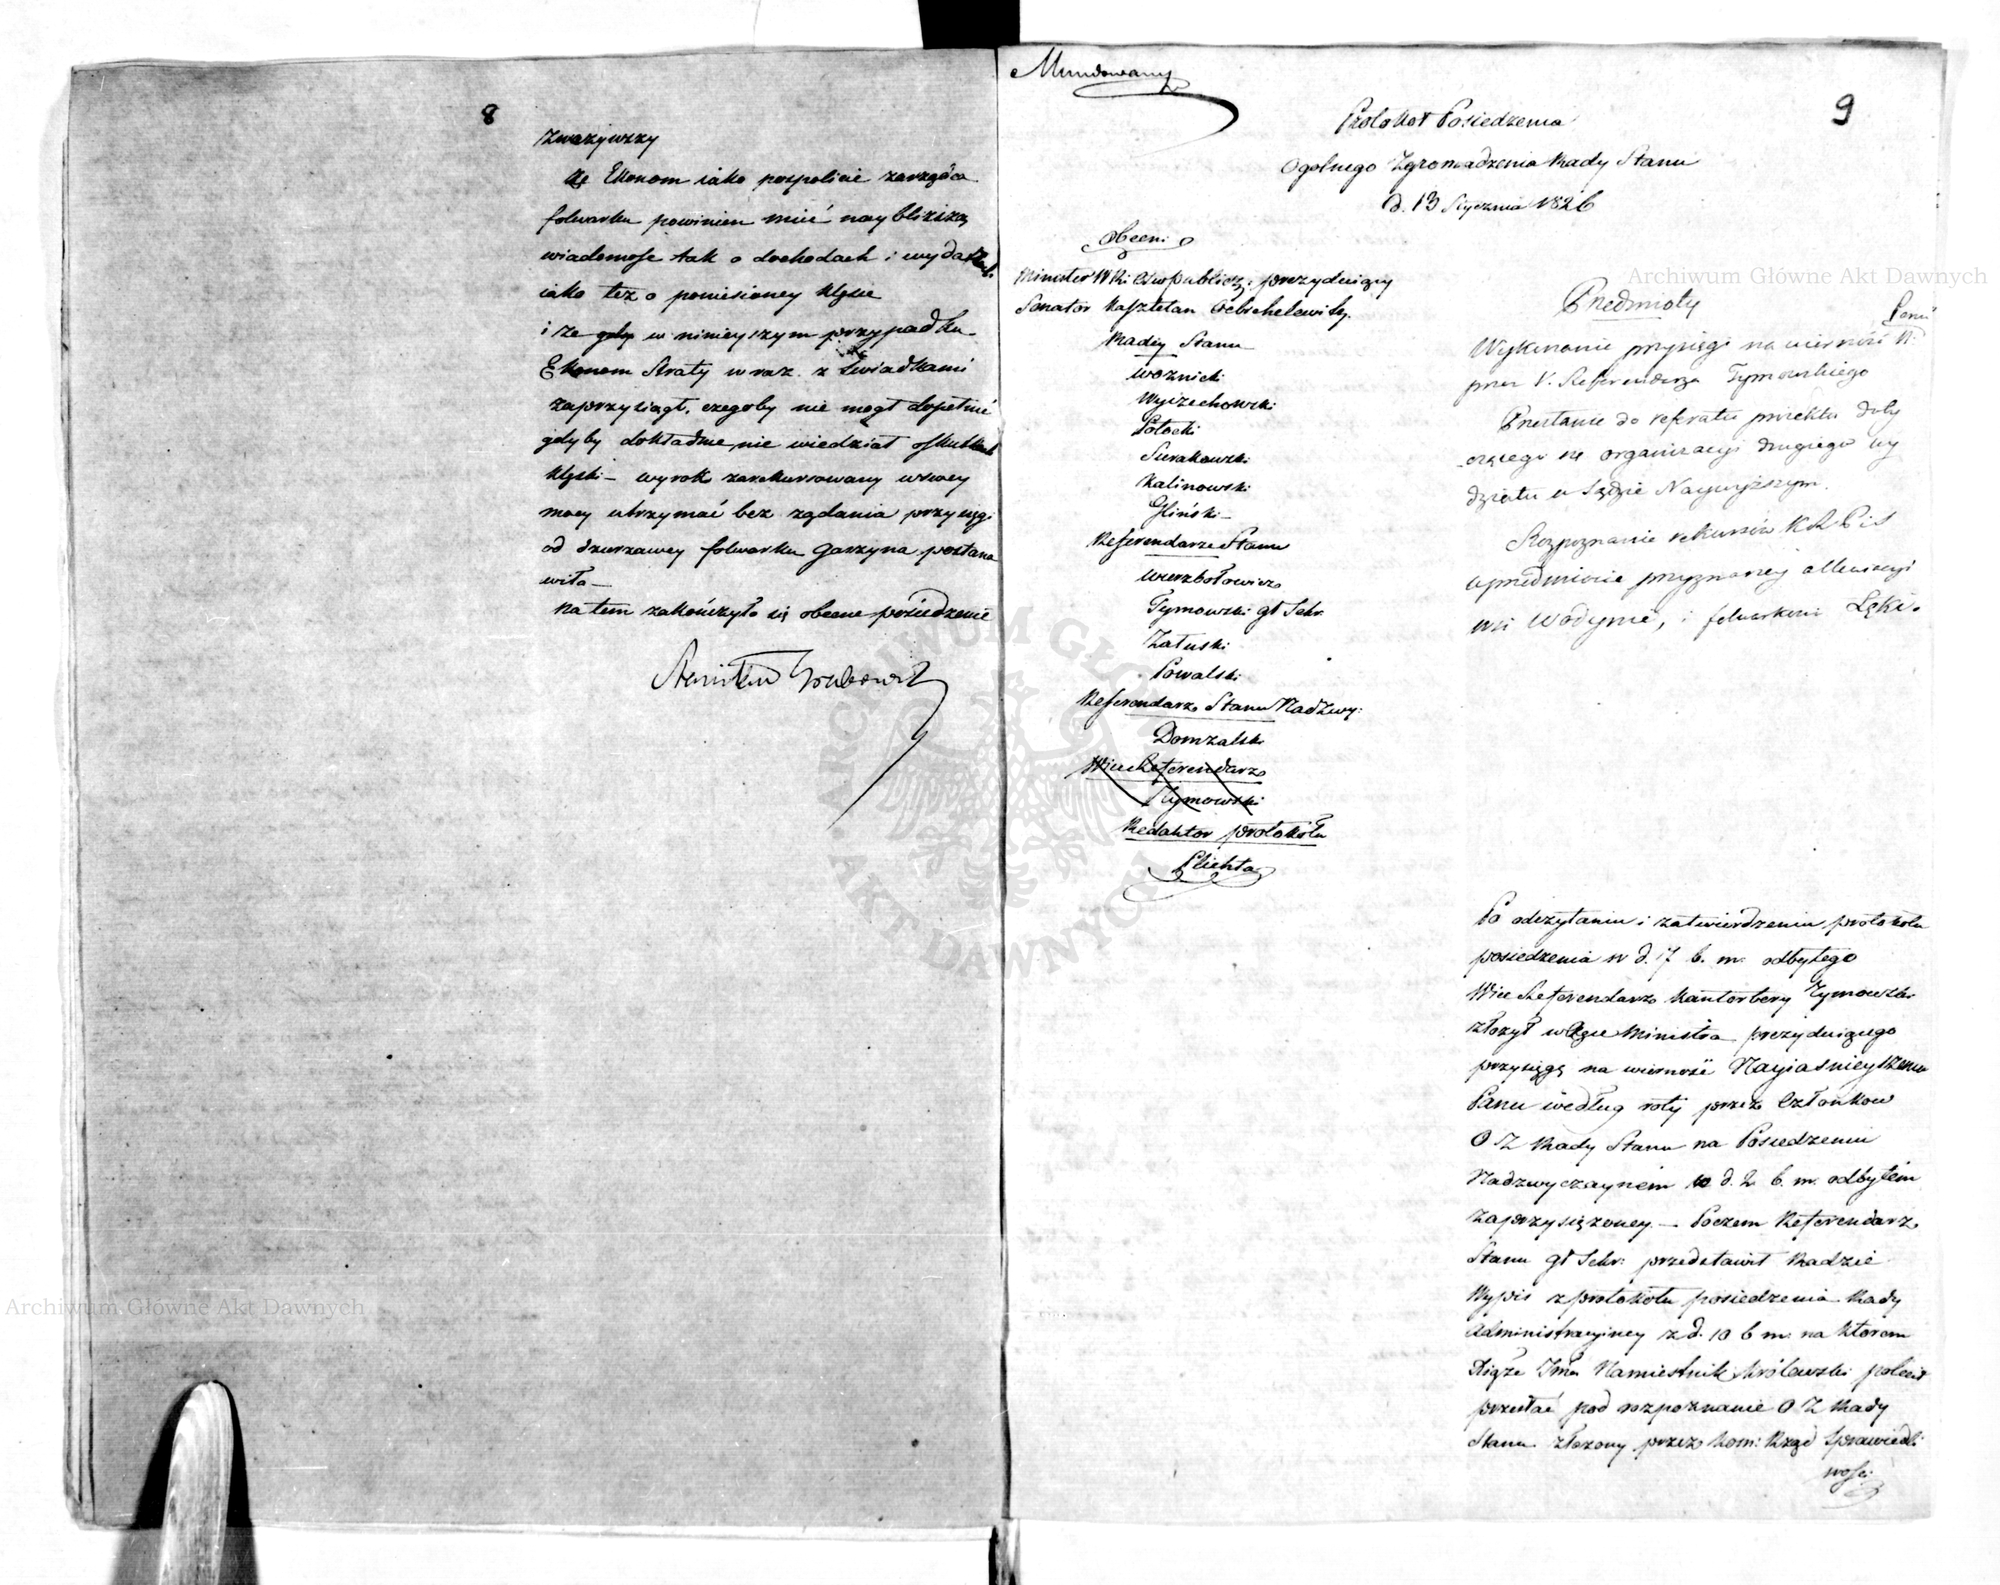 8
Zważywszy
że Ekonom iako pospolicie zarządca
folwarku powinien mieć naybliższą
wiadomość tak o dochodach i wydatkach
iako też o poniesioney klęsce
i że gdy w ninieyszym przypadku
Ekonom straty wraz z świadkami
zaprzysiągł, czegoby nie mógł dopełnić
gdyby dokładnie nie wiedział o skutkach
klęski – wyrok zarekursowany w swey
mocy utrzymać bez żądania przysięgi
od dzierżawcy folwarku Garzyna postano
wiła –
Na tem zakończyło się obecne posiedzenie
Mundowany
9
Protokół Posiedzenia
Ogolnego Zgromadzenia Rady Stanu
d. 13 Stycznia 1826
Obecni
Minister WRi Ośw publicz: prezyduiący
Senator Kasztelan
Radcy Stanu
Woznicki
Wyczechowski
Potocki
Sierakowski
Kalinowski
Gliński –
Referendarze Stanu
Wierzbołowicz
Tymowski gł Sekr.
Załuski
Kowalski
Referendarz Stanu Nadzwy:
Domzalski
Wice Referendarz
Tymowski
Redaktor protokółu
Plichta
Przedmioty
Wykonanie przysięgi na wierność N.
przez V. Referendarza Tymowskiego
Przesłanie do referatu proiektu doty
czącego się organizacyi drugiego wy
działu w Sądzie Naywyższym.
Rozpoznanie rekursów K R P i S
w przedmiocie przyznaney allewiacyi
wsi Wodynie, i folwarkowi Łęki.
Po odczytaniu i zatwierdzeniu protokółu
posiedzenia w d. 17 b. m. odbytego
Wice Referendarz Kantorbery Tymowski
złożył w ręce Ministra prezyduiącego
przysięgę na wierność Nayiaśnieyszemu
Panu według roty przez Członkow
O Z Rady Stanu na Posiedzeniu
Nadzwyczaynem w d. 2 b. m. odbytem
zaprzysiężoney. – Poczem Referendarz
Stanu gł Sekr: przedstawił Radzie
Wypis z protokółu posiedzenia Rady
Administracyiney z d. 10 b m: na którem
Xiąże Jmć Namiestnik Królewski polecił
przesłać pod rozpoznanie O Z Rady
Stanu złożony przez Kom: Rząd Sprawiedli
wości
Archiwum Główne Akt Dawnych
Archiwum Główne Akt Dawnych
ARCHIWUM GŁÓWNE AKT DAWNYCH